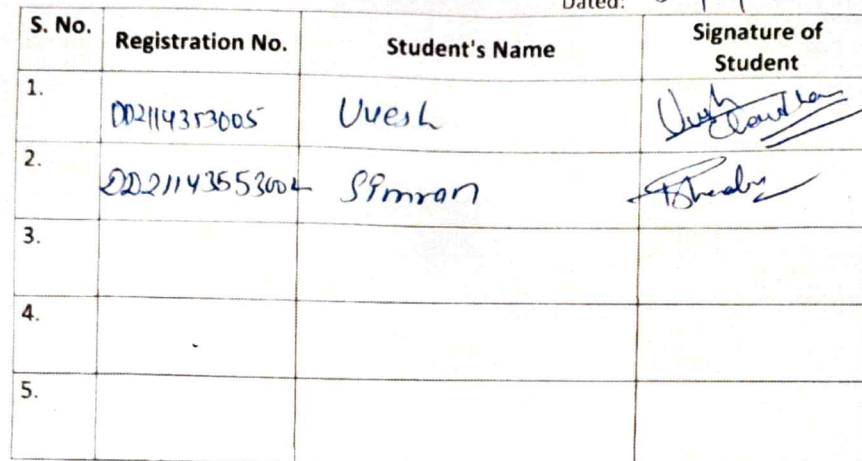 Dated:
S. No. Registration No. Student's Name Signature of Student
1. DD2114353005 Uvesh
2. Simran
3.
4.
5.